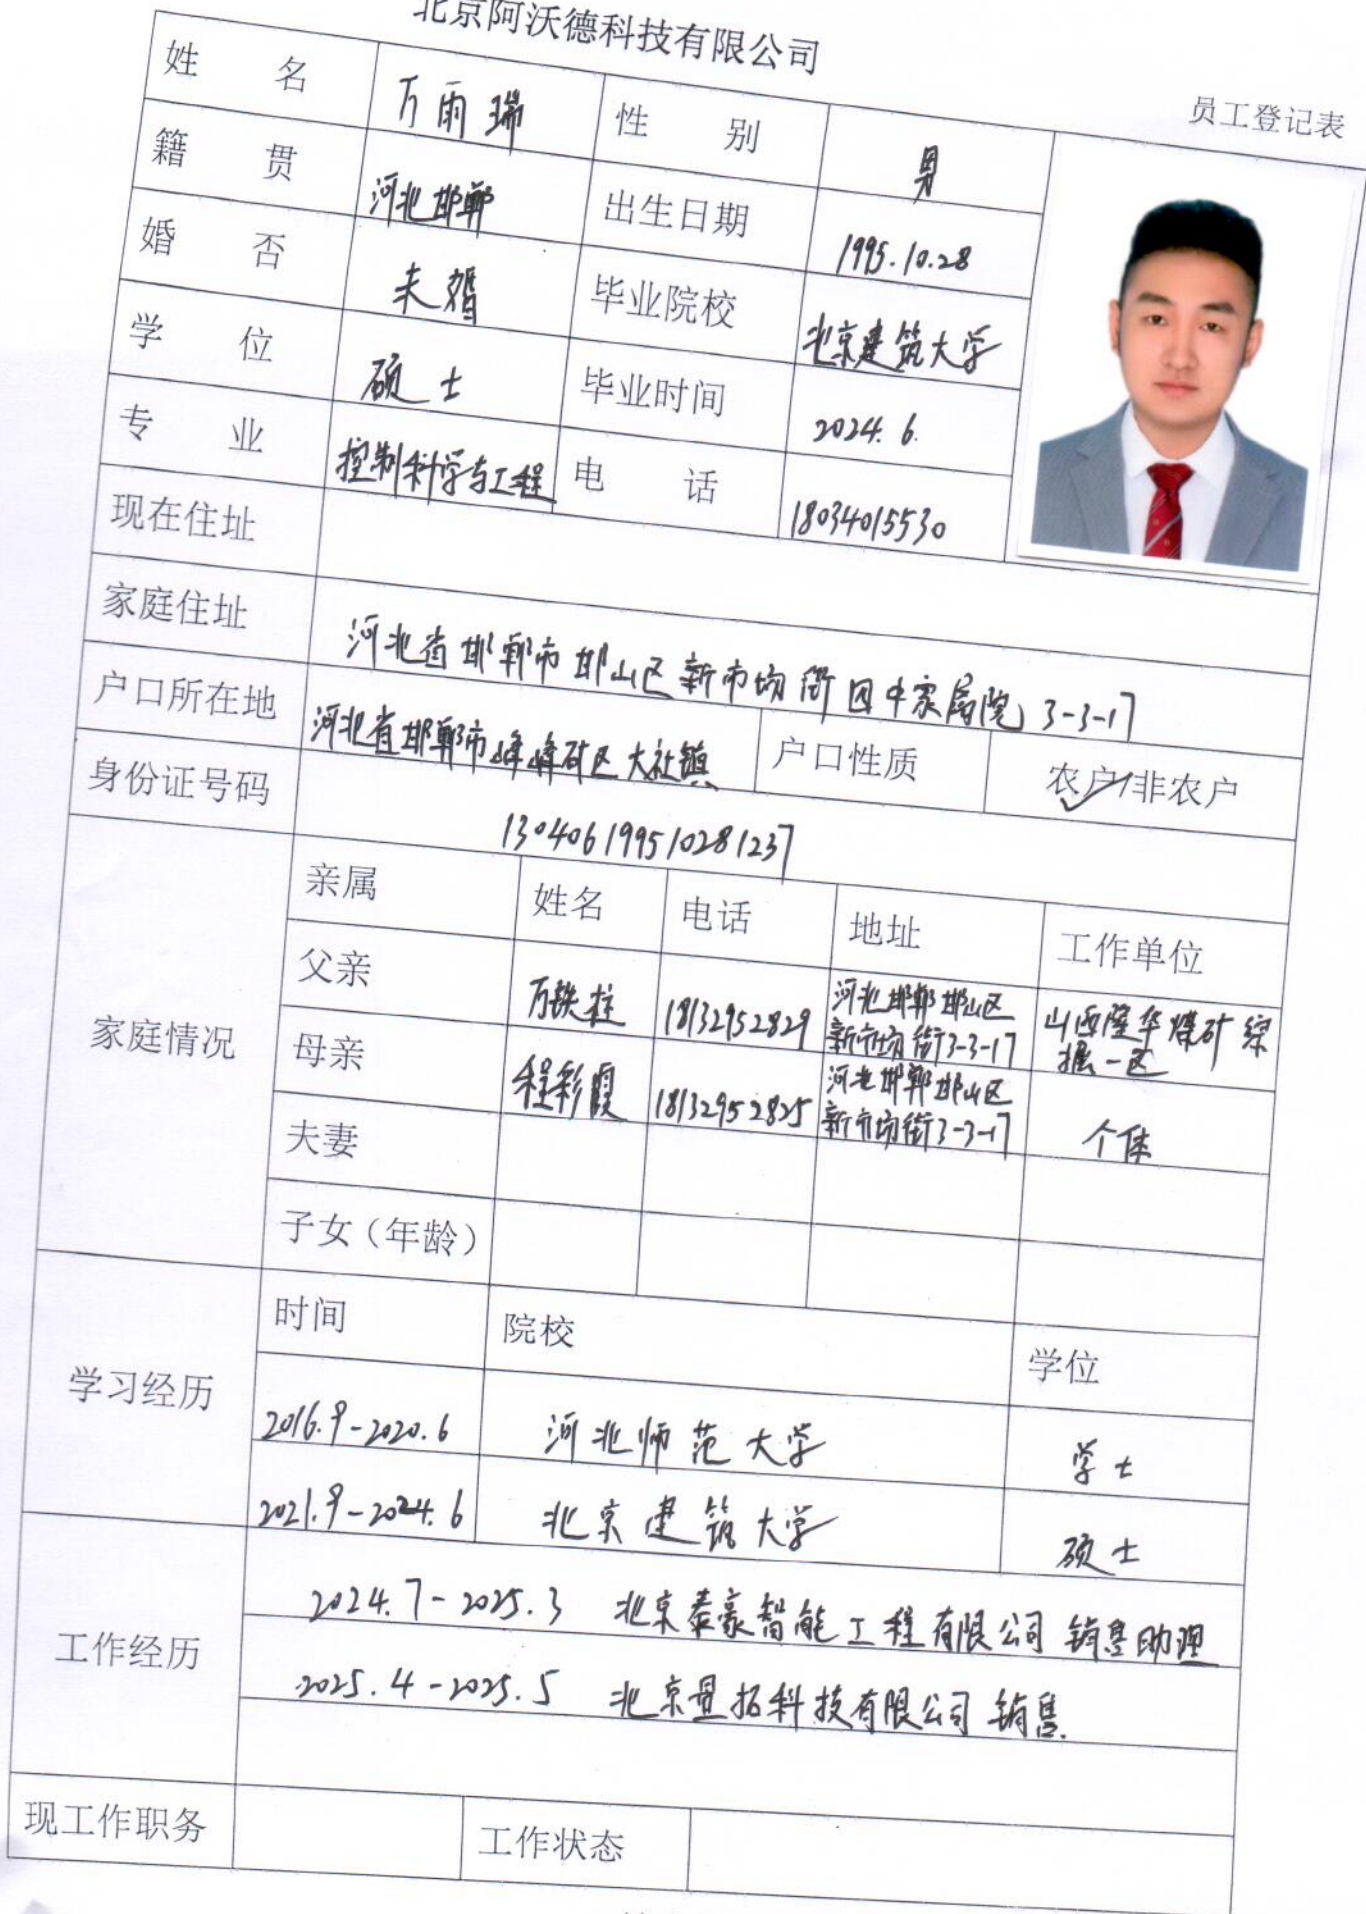 北京阿沃德科技有限公司
员工登记表
姓 名 万雨瑞 性 别 男
籍 贯 河北邯郸 出生日期 1995.10.28
婚 否 未婚 毕业院校 北京建筑大学
学 位 硕士 毕业时间 2024.6.
专 业 控制科学与工程 电 话 18034015530
现在住址
家庭住址 河北省邯郸市邯山区新市场街四中家属院3-3-17
户口所在地 河北省邯郸市峰峰矿区大社镇 户口性质 农户/非农户
身份证号码 130406199510281237
家庭情况
亲属 姓名 电话 地址 工作单位
父亲 万铁柱 18132952829 河北邯郸邯山区 山西隆华煤矿综
新市场街3-3-17 掘一区
母亲 程彩霞 18132952825 河北邯郸邯山区 个体
新市场街3-3-17
夫妻
子女（年龄）
学习经历
时间 院校 学位
2016.9-2020.6 河北师范大学 学士
2021.9-2024.6 北京建筑大学 硕士
工作经历
2024.7-2025.3 北京泰豪智能工程有限公司 销售助理
2025.4-2025.5 北京昱拓科技有限公司 销售
现工作职务 工作状态